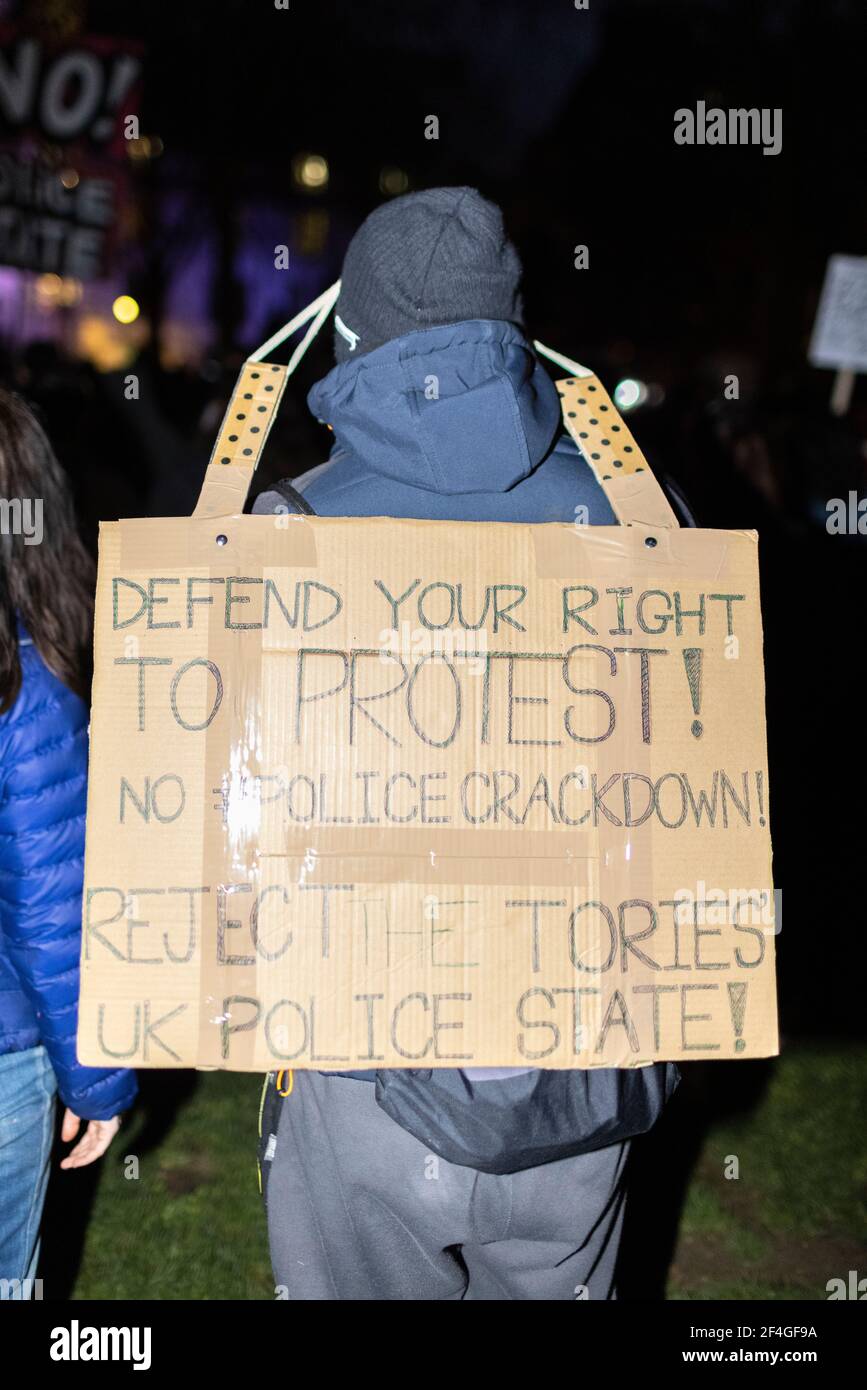 NO!
POLICE
STATE
DEFEND YOUR RIGHT
TO PROTEST!
NO #POLICE CRACKDOWN!
REJECT THE TORIES'
UK POLICE STATE!
alamy
Image ID: 2F4GF9A
www.alamy.com